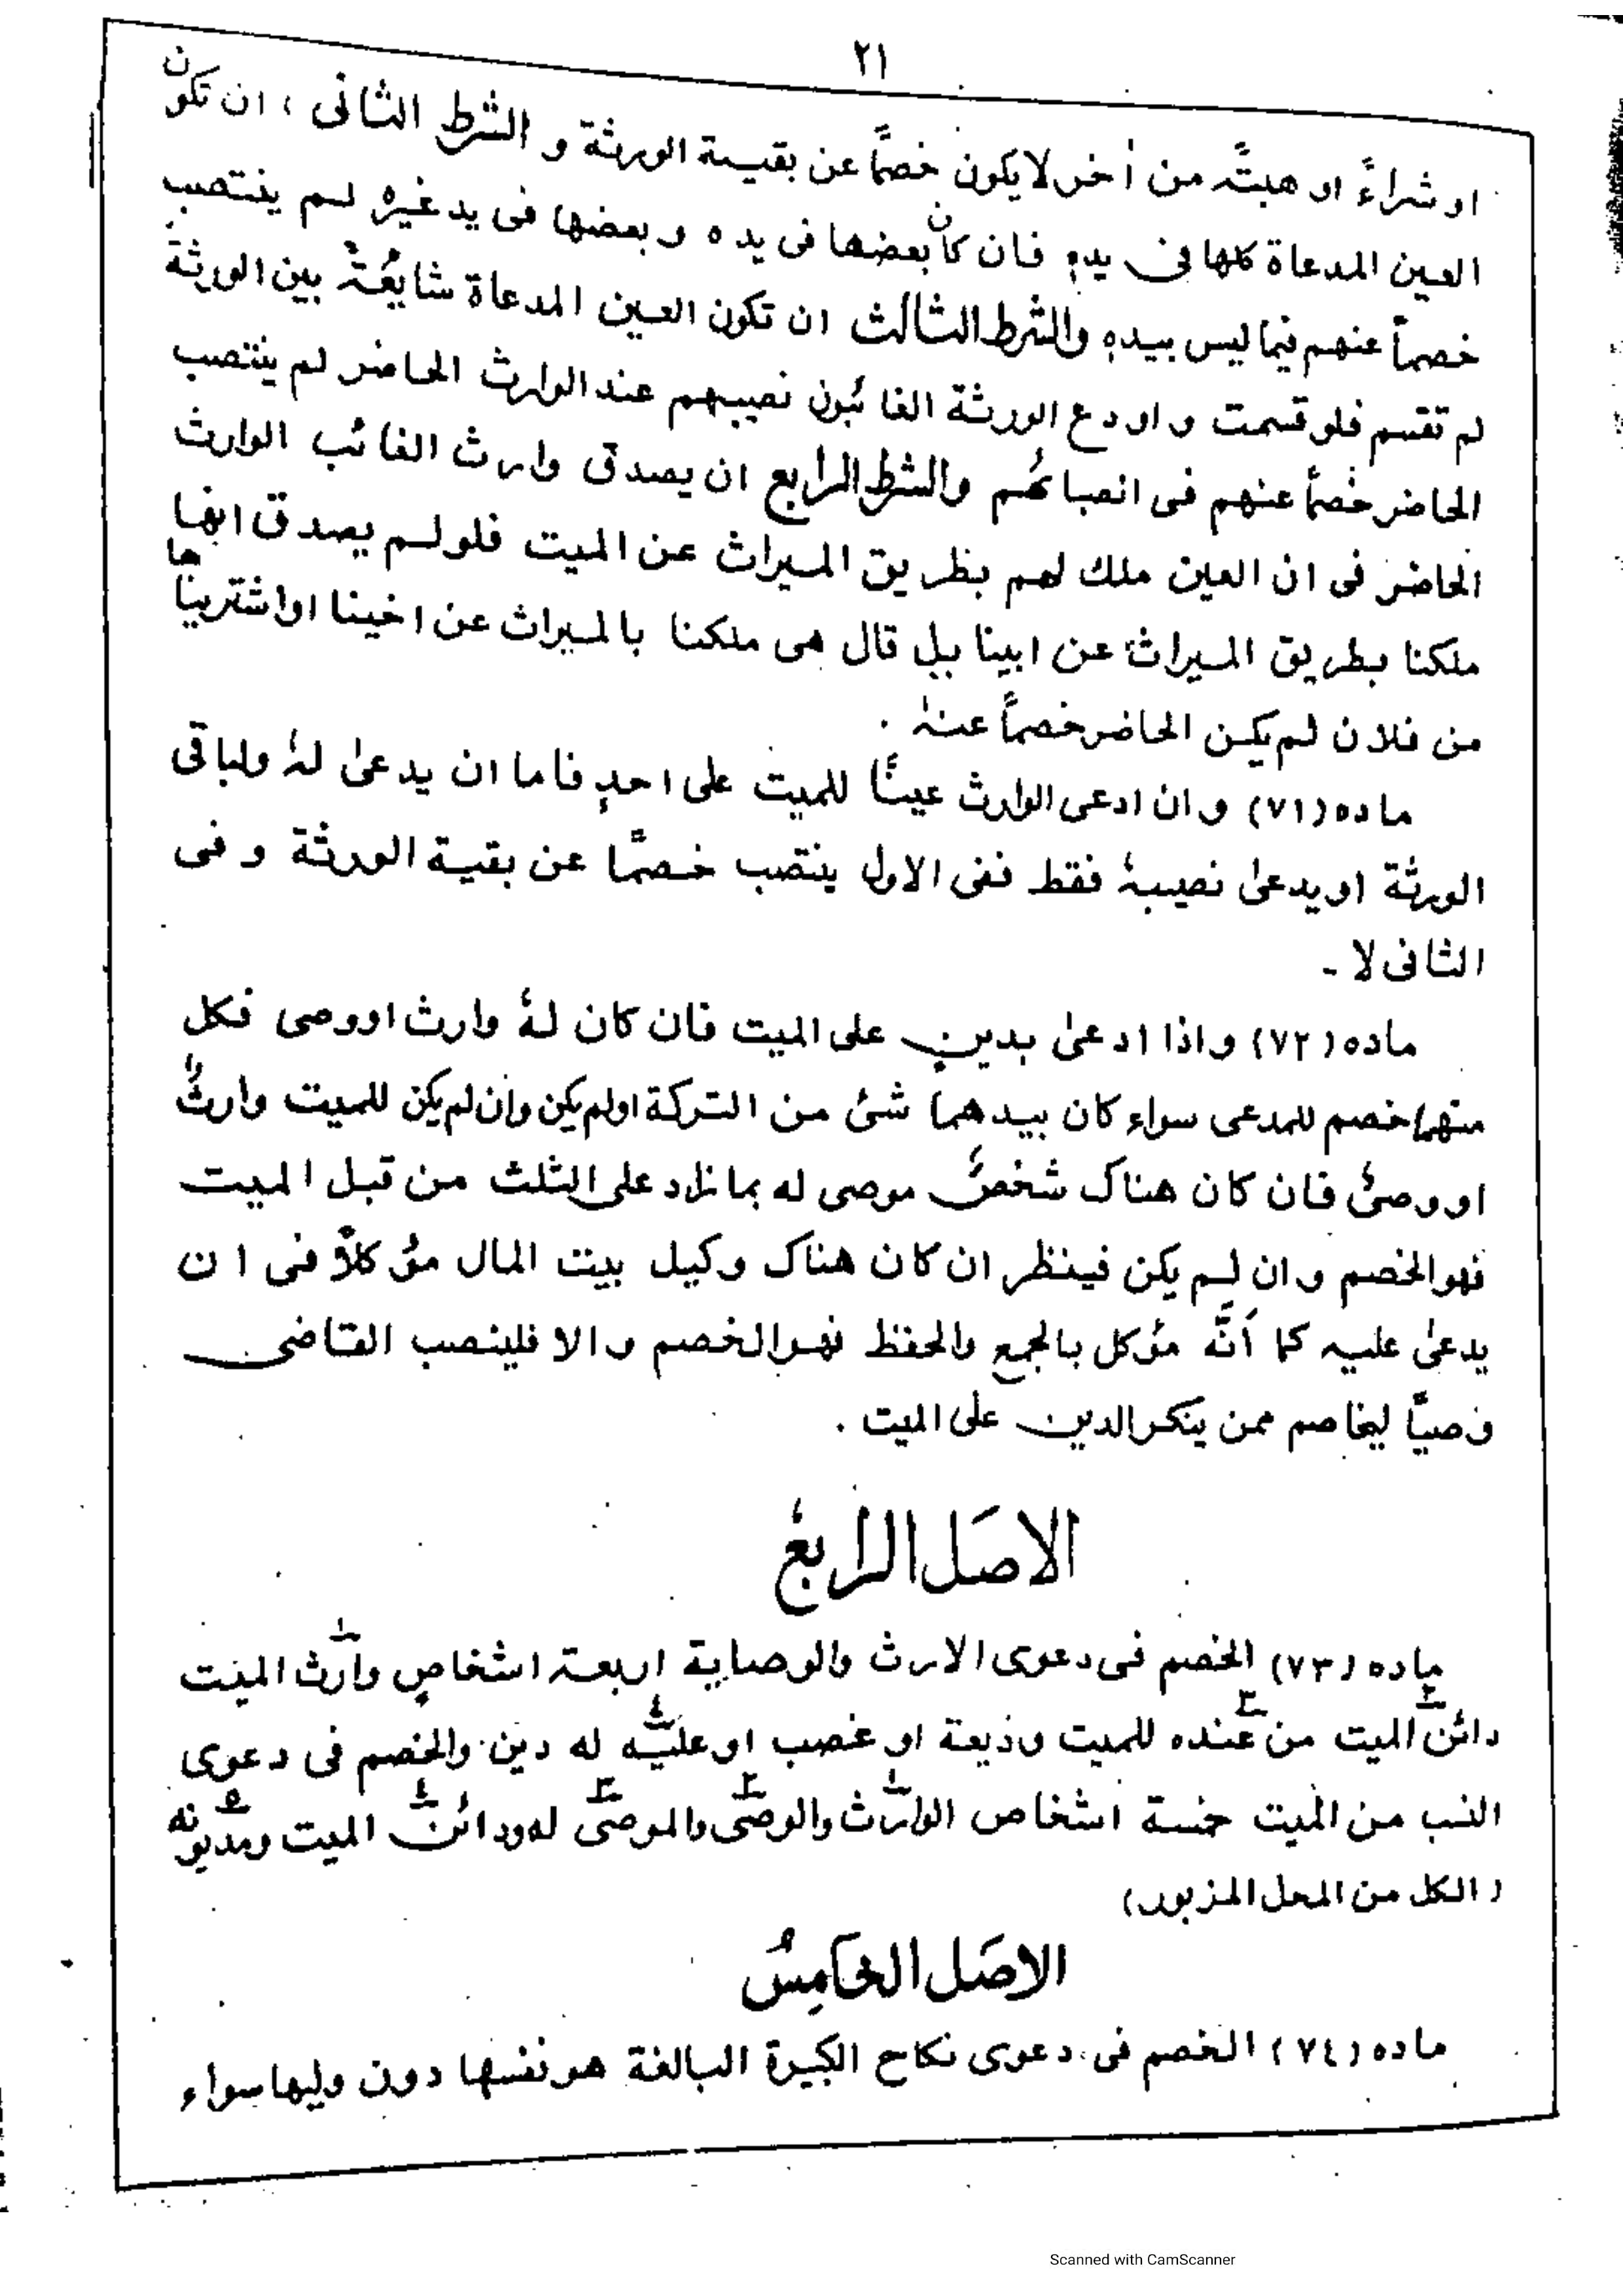 ٢١
او شراءً او هبتًہ من أخر لا يكون خصمًا عن بقية الورثة و الشرط الثانى ، ان تكون
العين المدعاة كلها فى يدہٖ فان كان بعضها فى يده و بعضها فى يد غيره لم ينتصب
خصماً عنهم فيما ليس بيدهٖ والشرط الثالث ان تكون العين المدعاة شايُعَتہ بين الورثة
لم تقسم فلو قسمت و اودع الورثة الغائبون نصيبهم عند الوارث الحاضر لم ينتصب
الحاضر خصماً عنهم فى انصبائهم والشرط الرابع ان يصدق وارث الغائب الوارث
الحاضر فى ان العين ملك لهم بطريق الميراث عن الميت فلو لم يصدق انها
ملكنا بطريق الميراث عن ابينا بل قال هى ملكنا بالميراث عن اخينا او اشتريناها
من فلان لم يكن الحاضر خصماً عنہٗ .
ماده (٧١) و ان ادعى الوارث عينًا للميت على احدٍ فاما ان يدعىٰ لهٗ ولباقى
الورثة او يدعىٰ نصيبهٗ فقط ففى الاول ينتصب خصمًا عن بقية الورثة و فى
الثانى لا ـ
ماده (٧٢) و اذا ادعىٰ بدينٍ على الميت فان كان لهٗ وارث او وصى فكل
منهما خصم للمدعى سواء كان بيدهما شئ من التركة او لم يكن وان لم يكن للميت وارثٌ
او وصىٌ فان كان هناك شخصٌ موصى له بما زاد على الثلث من قبل الميت
فهو الخصم و ان لم يكن فينظر ان كان هناك وكيل بيت المال مؤكلاً فى ان
يدعىٰ عليہ كما أنَّه مؤكل بالجمع والحفظ فهو الخصم و الا فلينصب القاضى
وصيًا ليخاصم ممن ينكر الدين على الميت .
الاصَل الرابعُ
ماده (٧٣) الخصم فى دعوى الارث والوصاية اربعة اشخاصٍ وارث١ الميت
دائن٢ الميت من عنده٣ للميت وديعة او غصب او عليه٤ له دين والخصم فى دعوى
النسب من الميت خمسة اشخاص الوارث١ والوصى٢ والموصى٣ له ودائن٤ الميت ومديونه٥
( الكل من المحل المزبور)
الاصَل الخامِسُ
ماده (٧٤) الخصم فى دعوى نكاح الكبيرة البالغة هو نفسها دون وليها سواء
Scanned with CamScanner